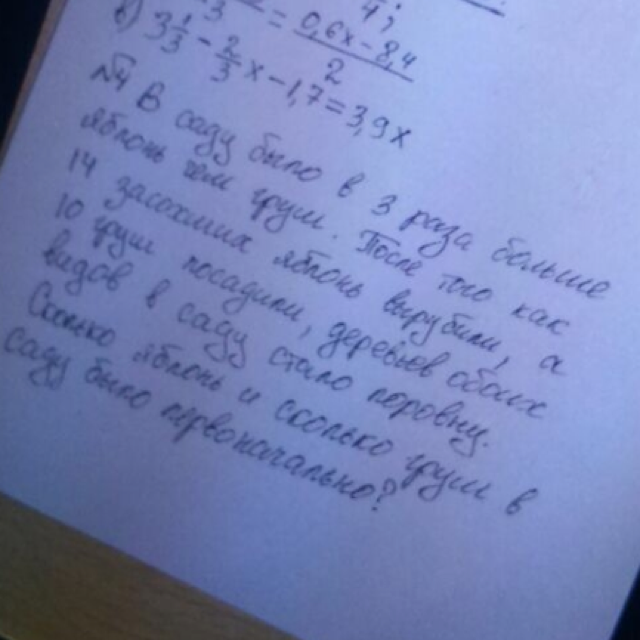 3 = 0,6x-8,4 4;
2
в) 3 1/3 - 2/3 x - 1,7 = 3,9x
№4 В саду было в 3 раза больше
яблонь чем груш. После того как
14 засохших яблонь вырубили, а
10 груш посадили, деревьев обоих
видов в саду стало поровну.
Сколько яблонь и сколько груш в
саду было первоначально?